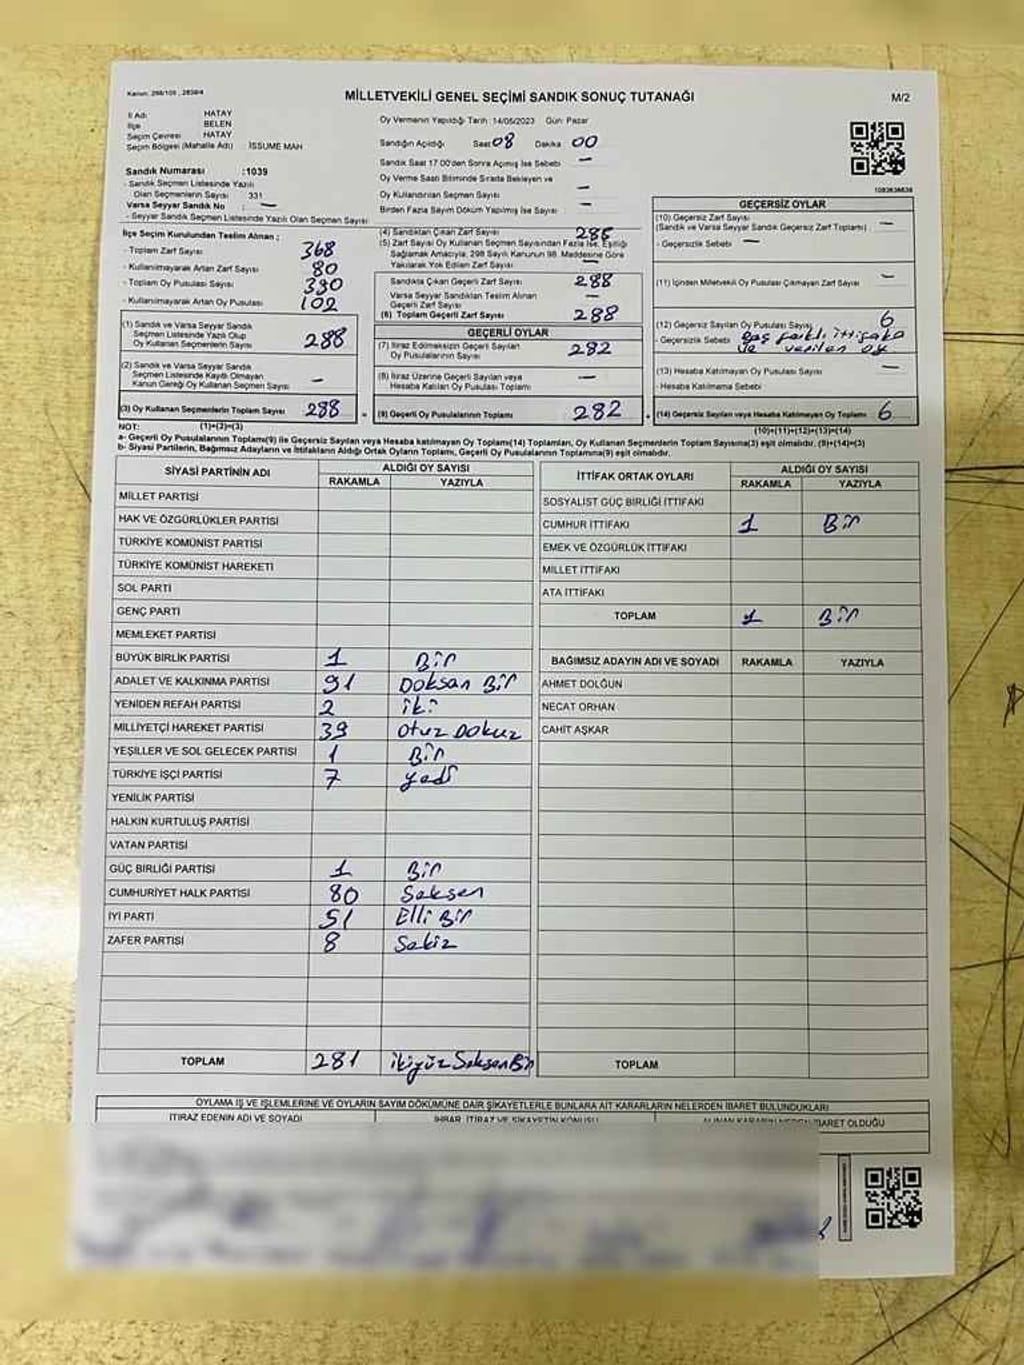 Kanun: 298/105 , 2839/4
MİLLETVEKİLİ GENEL SEÇİMİ SANDIK SONUÇ TUTANAĞI
M/2
İl Adı HATAY
İlçe BELEN
Seçim Çevresi HATAY
Seçim Bölgesi (Mahalle Adı) İSSUME MAH
Sandık Numarası :1039
- Sandık Seçmen Listesinde Yazılı
Olan Seçmenlerin Sayısı 331
Varsa Seyyar Sandık No : —
- Seyyar Sandık Seçmen Listesinde Yazılı Olan Seçmen Sayısı
Oy Vermenin Yapıldığı Tarih: 14/05/2023 Gün: Pazar
Sandığın Açıldığı Saat 08 Dakika 00
Sandık Saat 17.00'den Sonra Açılmış İse Sebebi —
Oy Verme Saati Bitiminde Sırada Bekleyen ve
Oy Kullandırılan Seçmen Sayısı —
Birden Fazla Sayım Döküm Yapılmış İse Sayısı —
İlçe Seçim Kurulundan Teslim Alınan ;
- Toplam Zarf Sayısı 368
- Kullanılmayarak Artan Zarf Sayısı 80
- Toplam Oy Pusulası Sayısı 390
- Kullanılmayarak Artan Oy Pusulası 102
(1) Sandık ve Varsa Seyyar Sandık
Seçmen Listesinde Yazılı Olup
Oy Kullanan Seçmenlerin Sayısı 288
(2) Sandık ve Varsa Seyyar Sandık
Seçmen Listesinde Kaydı Olmayan
Kanun Gereği Oy Kullanan Seçmen Sayısı —
(3) Oy Kullanan Seçmenlerin Toplam Sayısı 288 =
(4) Sandıktan Çıkan Zarf Sayısı 288
(5) Zarf Sayısı Oy Kullanan Seçmen Sayısından Fazla İse, Eşitliği
Sağlamak Amacıyla, 298 Sayılı Kanunun 98. Maddesine Göre
Yakılarak Yok Edilen Zarf Sayısı —
Sandıkta Çıkan Geçerli Zarf Sayısı 288
Varsa Seyyar Sandıktan Teslim Alınan
Geçerli Zarf Sayısı —
(6) Toplam Geçerli Zarf Sayısı 288
GEÇERLİ OYLAR
(7) İtiraz Edilmeksizin Geçerli Sayılan
Oy Pusulalarının Sayısı 282
(8) İtiraz Üzerine Geçerli Sayılan veya
Hesaba Katılan Oy Pusulası Toplamı —
(9) Geçerli Oy Pusulalarının Toplamı 282 +
GEÇERSİZ OYLAR
(10) Geçersiz Zarf Sayısı
(Sandık ve Varsa Seyyar Sandık Geçersiz Zarf Toplamı) —
- Geçersizlik Sebebi —
(11) İçinden Milletvekili Oy Pusulası Çıkmayan Zarf Sayısı —
(12) Geçersiz Sayılan Oy Pusulası Sayısı 6
- Geçersizlik Sebebi Baş farklı ittifaka
ve verilen oy
(13) Hesaba Katılmayan Oy Pusulası Sayısı —
- Hesaba Katılmama Sebebi
(14) Geçersiz Sayılan veya Hesaba Katılmayan Oy Toplamı 6
NOT: (1)+(2)=(3) (10)+(11)+(12)+(13)=(14)
a- Geçerli Oy Pusulalarının Toplamı(9) ile Geçersiz Sayılan veya Hesaba katılmayan Oy Toplamı(14) Toplamları, Oy Kullanan Seçmenlerin Toplam Sayısına(3) eşit olmalıdır. (9)+(14)=(3)
b- Siyasi Partilerin, Bağımsız Adayların ve İttifakların Aldığı Ortak Oyların Toplamı, Geçerli Oy Pusulalarının Toplamına(9) eşit olmalıdır.
SİYASİ PARTİNİN ADI ALDIĞI OY SAYISI
RAKAMLA YAZIYLA
MİLLET PARTİSİ
HAK VE ÖZGÜRLÜKLER PARTİSİ
TÜRKİYE KOMÜNİST PARTİSİ
TÜRKİYE KOMÜNİST HAREKETİ
SOL PARTİ
GENÇ PARTİ
MEMLEKET PARTİSİ
BÜYÜK BİRLİK PARTİSİ 1 Bir
ADALET VE KALKINMA PARTİSİ 91 Doksan Bir
YENİDEN REFAH PARTİSİ 2 iki
MİLLİYETÇİ HAREKET PARTİSİ 39 Otuz Dokuz
YEŞİLLER VE SOL GELECEK PARTİSİ 1 Bir
TÜRKİYE İŞÇİ PARTİSİ 7 yedi
YENİLİK PARTİSİ
HALKIN KURTULUŞ PARTİSİ
VATAN PARTİSİ
GÜÇ BİRLİĞİ PARTİSİ 1 Bir
CUMHURİYET HALK PARTİSİ 80 Seksen
İYİ PARTİ 51 Elli Bir
ZAFER PARTİSİ 8 Sekiz
TOPLAM 281 ikiyüz Seksen Bir
İTTİFAK ORTAK OYLARI ALDIĞI OY SAYISI
RAKAMLA YAZIYLA
SOSYALİST GÜÇ BİRLİĞİ İTTİFAKI
CUMHUR İTTİFAKI 1 Bir
EMEK VE ÖZGÜRLÜK İTTİFAKI
MİLLET İTTİFAKI
ATA İTTİFAKI
TOPLAM 1 Bir
BAĞIMSIZ ADAYIN ADI VE SOYADI RAKAMLA YAZIYLA
AHMET DOLĞUN
NECAT ORHAN
CAHİT AŞKAR
TOPLAM
OYLAMA İŞ VE İŞLEMLERİNE VE OYLARIN SAYIM DÖKÜMÜNE DAİR ŞİKAYETLERLE BUNLARA AİT KARARLARIN NELERDEN İBARET BULUNDUKLARI
İTİRAZ EDENİN ADI VE SOYADI İHBAR, İTİRAZ VE ŞİKAYETİN KONUSU ALINAN KARARIN NEDEN İBARET OLDUĞU